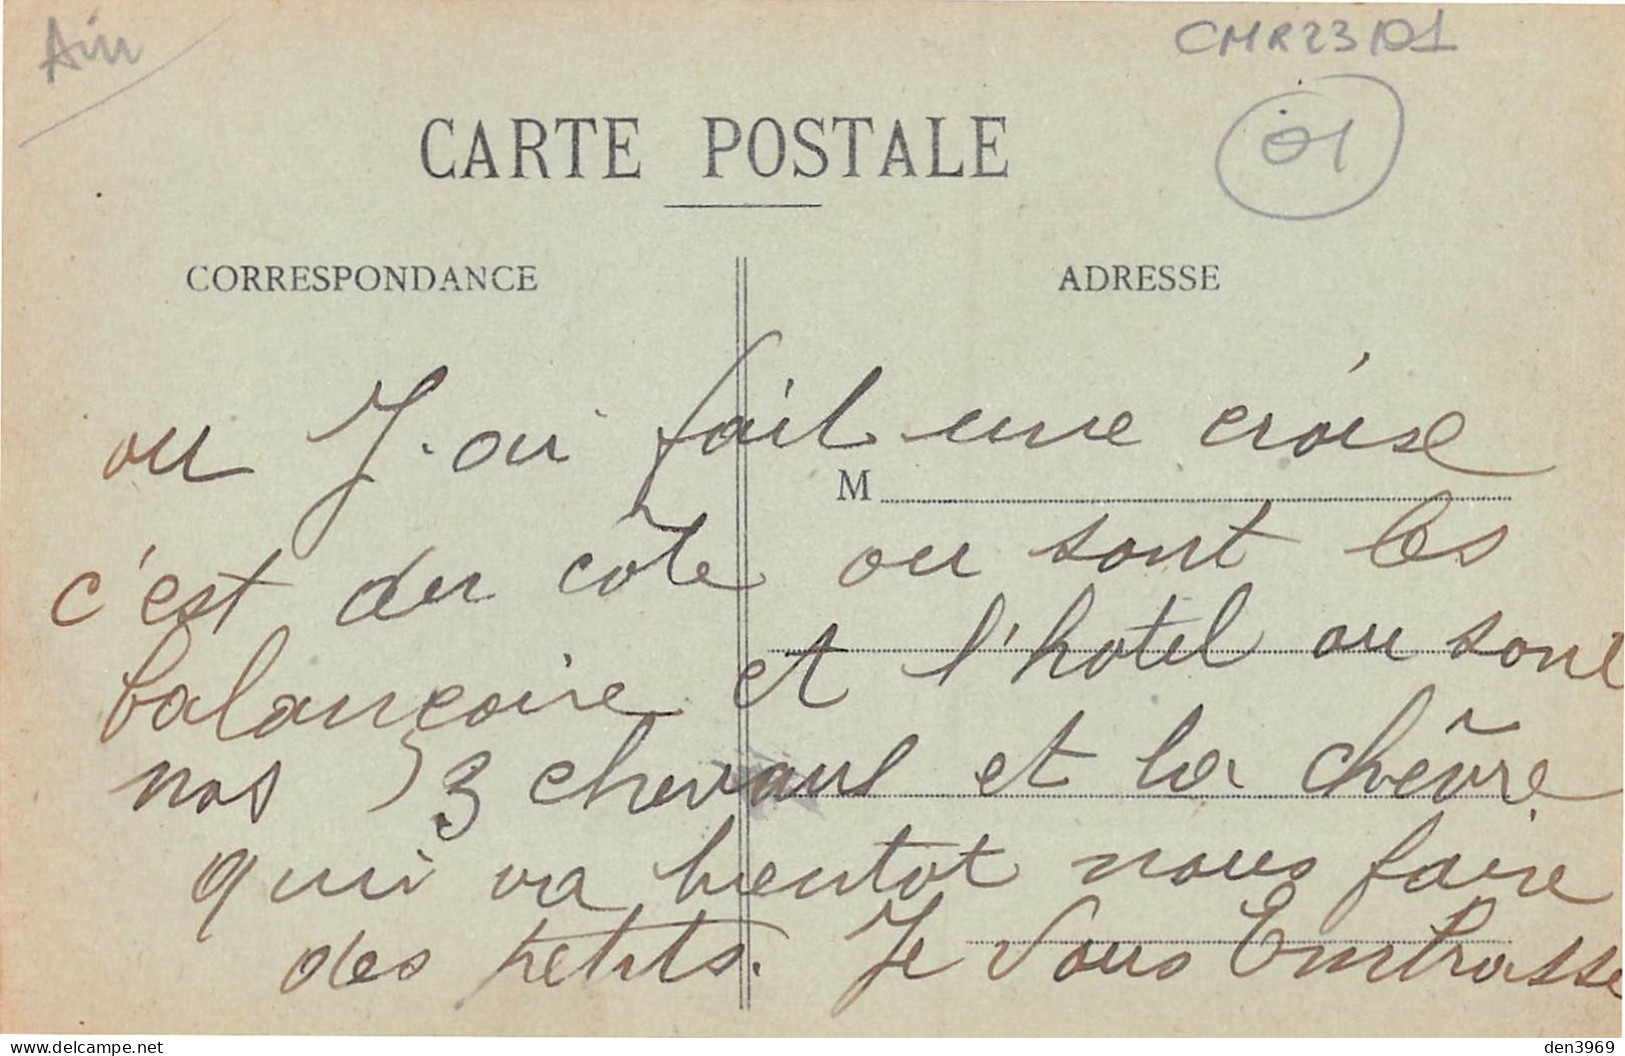 Ain
CMR23D1
01
CARTE POSTALE
CORRESPONDANCE
ADRESSE
ou J. ai fait une croise
M
c'est du cote ou sont les
balançoire et l'hotel ou sont
nos 3 chevaus et la chêvre
qui va bientot nous faire
des petits. Je vous Embrasse
www.delcampe.net
den3969